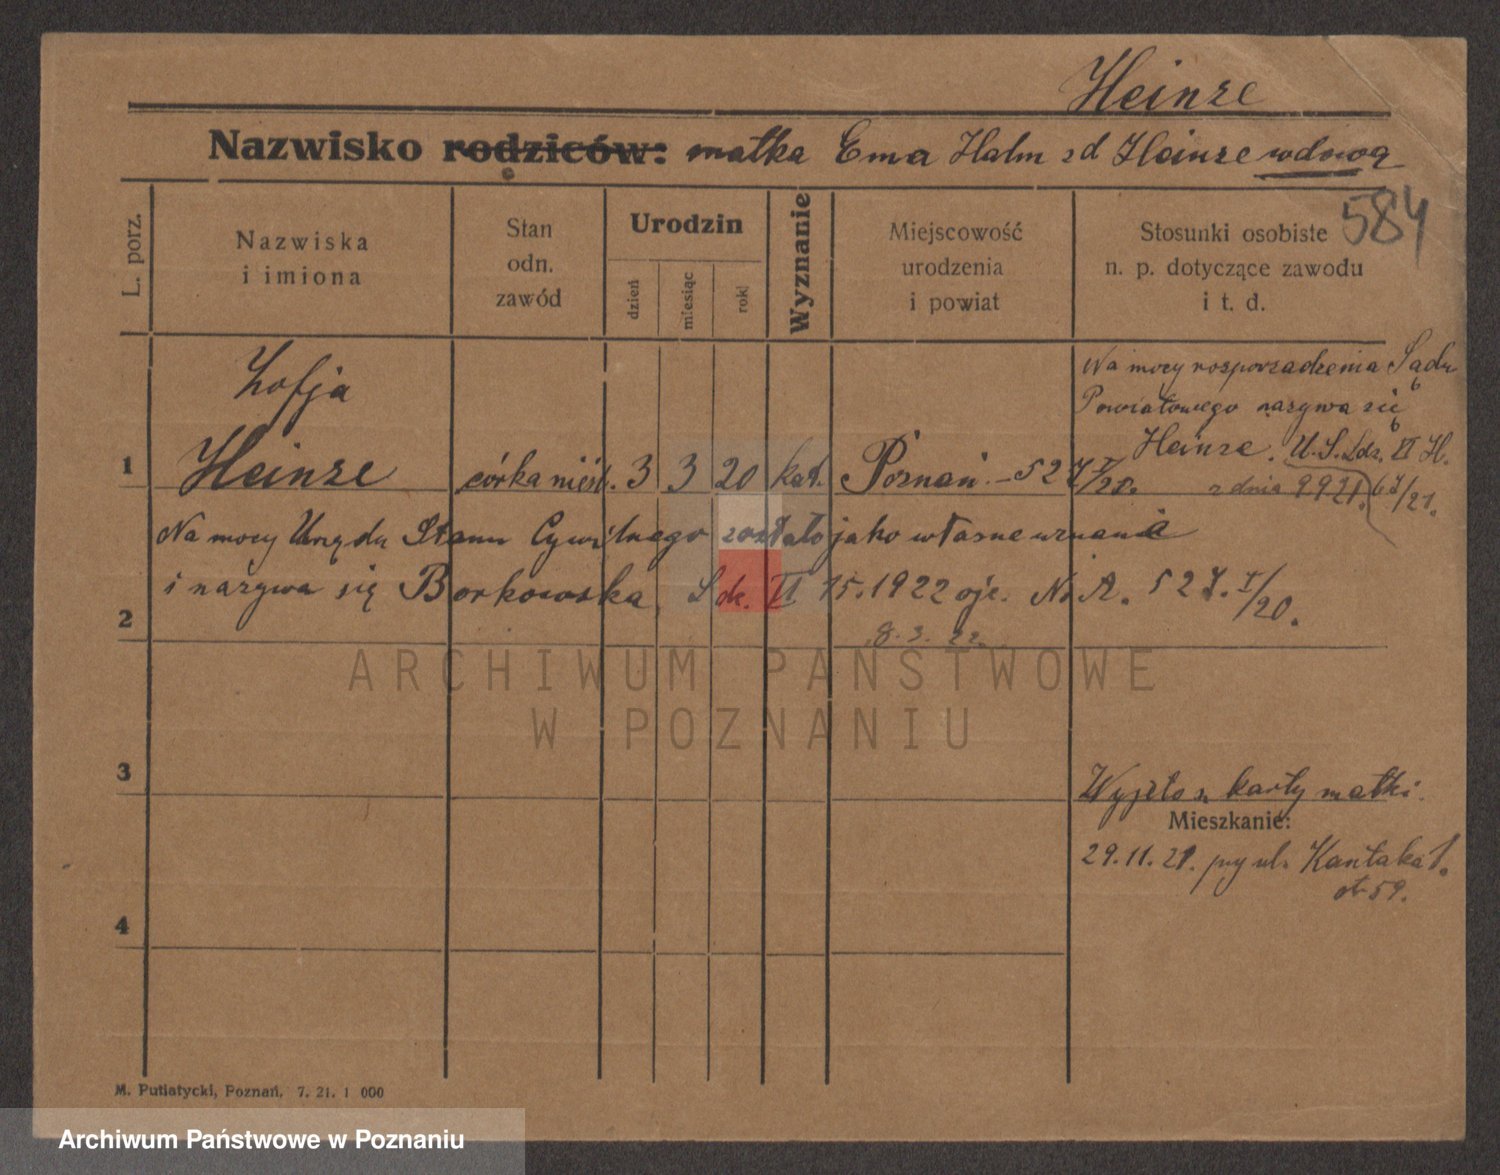 Heinze
Nazwisko rodziców: matka Ema Halm zd Heinze wdową
584
L. porz.
Nazwiska
i imiona
Stan
odn.
zawód
Urodzin
dzień
miesiąc
rok
Wyznanie
Miejscowość
urodzenia
i powiat
Stosunki osobiste
n. p. dotyczące zawodu
i t. d.
Na mocy rozporządzenia Sądu
Powiatowego nazywa się
Heinze. U. S. Ldz. VI H.
z dnia 9 9 21.
Zofja
1 Heinze córka nieśl. 3 3 20 kat. Poznań - 52
Na mocy Urzędu Stanu Cywilnego zostało jako własne uznanie
i nazywa się Borkowska, Ldz. VI 15. 1922 oje. N. A. 52 I/20.
2
8. 3. 22.
ARCHIWUM PAŃSTWOWE
W POZNANIU
3
Wyszło z karty matki.
Mieszkanie:
29. 11. 21. przy ul. Kantaka 1.
59.
4
M. Putiatycki, Poznań. 7. 21. 1 000
Archiwum Państwowe w Poznaniu